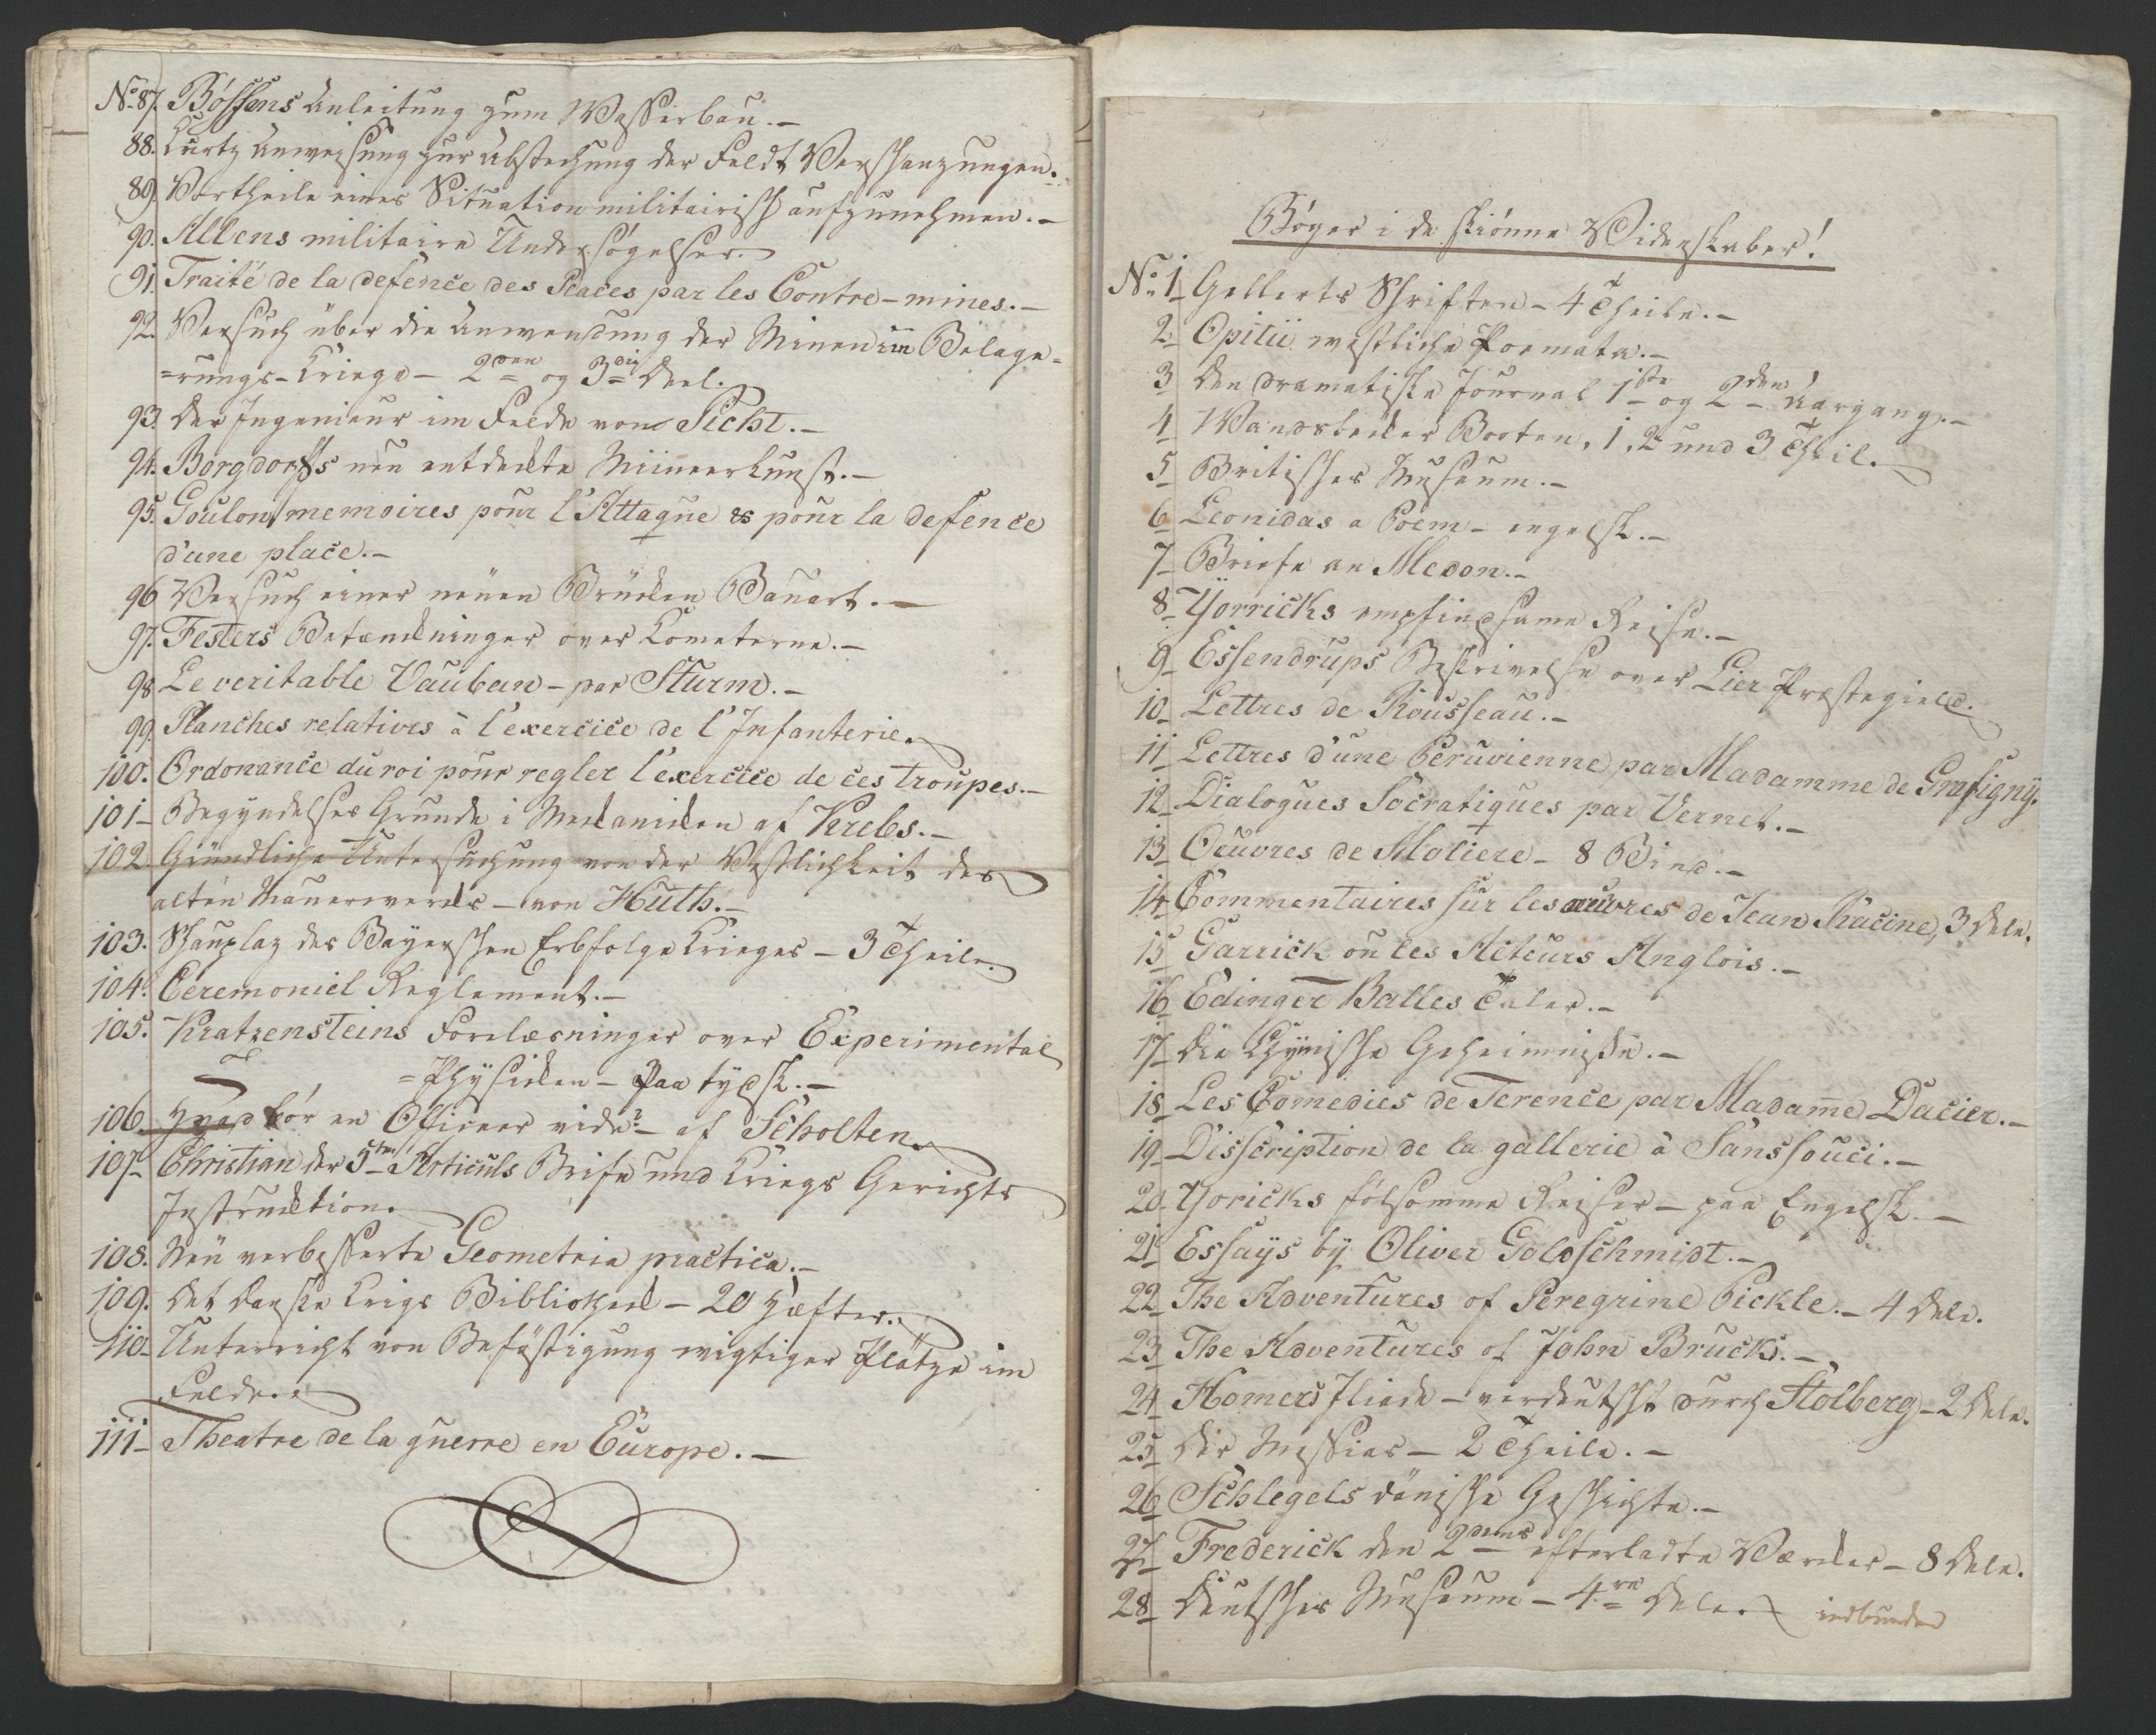 No 87. Bössens Anleitung zum Wasserbau.-
88. Kurtz Anweisung zur Abstechung der Feldt Verschanzungen.
89. Vortheile einer Situation militairisch aufzunehmen.-
90. Allens militaire Undersögelser.
91. Traité de la defence des Places par les Contre-mines.-
92. Versuch über die Anwendung der Minen im Belage=
=rungs-Kriege - 2den og 3die Deel.
93. Der Ingenieur im Felde von Picht.-
94. Borgdorffs neu entdeckte Mineerkunst.-
95. Goulon, memoires pour l'Attaque es pour la defence
d'une place.-
96 Versuch einer neuen Brücken Bauart.-
97. Festers Betænckninger over Kometerne.-
98 Le veritable Vauban - par Sturm.-
99. Planches relatives à l'exercice de l'Infanterie.
100. Ordonance du roi pour regler l'exercice de ces troupes.-
101- Begyndelses Grunde i Mechaniken af Krebs.-
102. Gründliche Untersuchung von der Vestlichkeit des
alten Mauerwercks - von Huth.-
103. Schauplaz des Bayerschen Erbfolge Krieges - 3 Theile.
104. Ceremoniel Reglement.-
105. Kratzensteins Forelæsninger over Experimental
=Physicken - paa tydsk.-
106. Hvad bör en Officeer vide? - af Scholten.
107- Christian der 5ten Articuls Brife und Kriegs Gerichts
Instrucktion.
108. Neu verbesserte Geometria practica.-
109. Det Danske Krigs Bibliotheck - 20 Hæfter.
110- Unterricht von Befästigung wigtiger Plätze im
Felde.
111- Theatre de la guerre en Europe.-
Böger i de skiönne Videnskaber!
No 1 Gellerts Schriften - 4 Theile.-
2 Opitii westliche Poemata.-
3 Den dramatiske Journal 1ste og 2den Aargang.-
4 Wandsbecker Booten, 1, 2 und 3 Theil.
5 Britisches Museum.-
6 Leonidas a Poem - engelsk.-
7- Briefe an Medon.-
8- Yorricks empfindsame Reise.-
9- Essendrups Beskrivelse over Lier Præstegield.
10 Lettres de Rousseau.-
11 Lettres d'une Peruvienne par Madamme de Grafigny.
12 Dialogues Socratiques par Vernet.-
13 Oeuvres de Moliere - 8 Bind.-
14 Commentaires sur les œuvres de Jean Racine, 3 Dele.
15 Garrick ou les Acteurs Anglois.-
16 Edinger Balles Taler.-
17 Die Chymische Geheimniße.-
18 Les Comedies de Terence par Madame Dacier.-
19- Disscription de la gallerie à Sanssouci.-
20. Yoricks fölsomme Reiser - paa Engelsk.-
21 Essays by Oliver Goldschmidt.-
22 The Adventures of Peregrine Pickle.- 4 Dele.
23 The Adventures of John Bruck.-
24 Homers Iliade - verdeutscht durch Stolberg - 2 Dele.
25 Der Messias - 2 Theile.-
26 Schlegels dänische Geschichte.-
27 Frederick den 2dens efterladte Værcker - 8 Dele.
28 Deutsches Museum - 4re Dele. indbunden